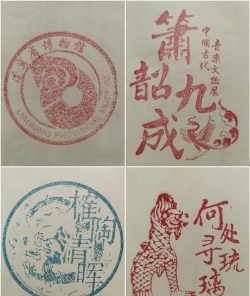 辽宁省博物馆
LIAONING PROVINCIAL MUSEUM
簫韶九成
中國古代
音樂文物展
摧陶清晖
何处寻琉璃